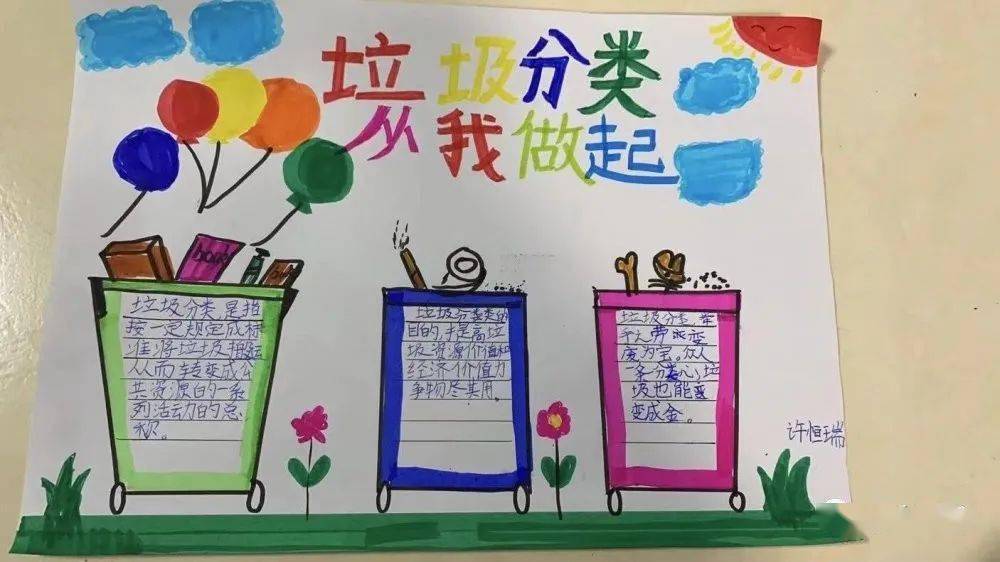 垃圾分类
从我做起
book
垃圾分类是指
按一定规定或标
准将垃圾
从而转变成公
共资源的一系
列活动的总
称。
垃圾分类的
目的,提高垃
圾资源价值和
经济价值力
争物尽其用。
垃圾分类 举
手之劳 变
废为宝。众人
一条心,垃
圾也能
变成金。
许恒瑞